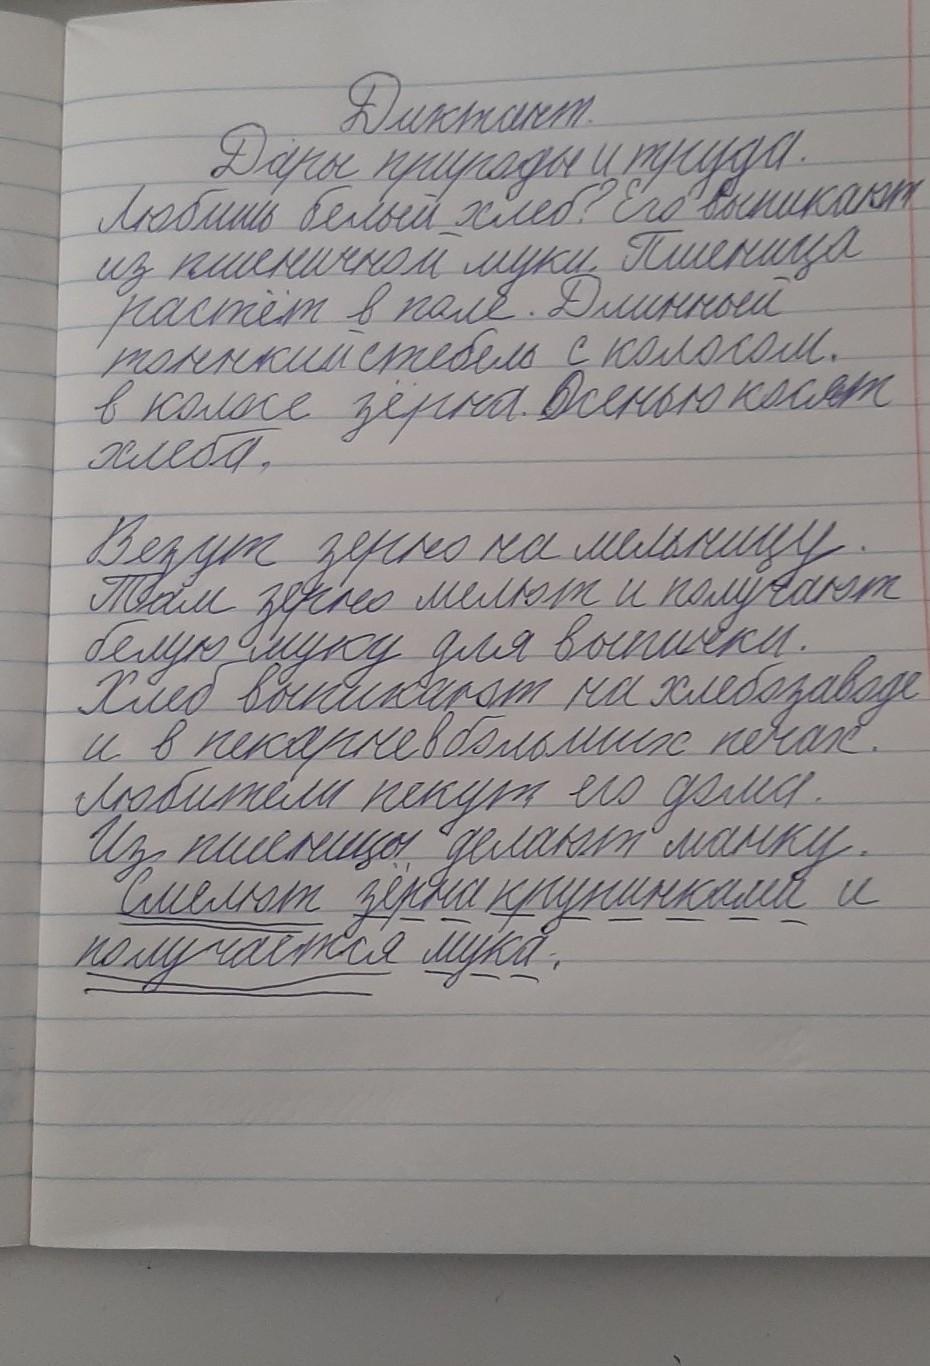 Диктант.
Дары природы и труда.
Любишь белый хлеб? Его выпикают
из пшеничной муки. Пшеница
растёт в поле. Длинный
тоннкий стебель с колосом.
в колосе зёрна. Осенью косят
хлеба.
Везут зерно на мельницу.
Там зерно мелют и получают
белую муку для выпички.
Хлеб выпикают на хлебозаводе
и в пекарне в больших печах.
Любители пекут его дома.
Из пшеницы делают манку.
Смелют зёрна крупинками и
получается мука.